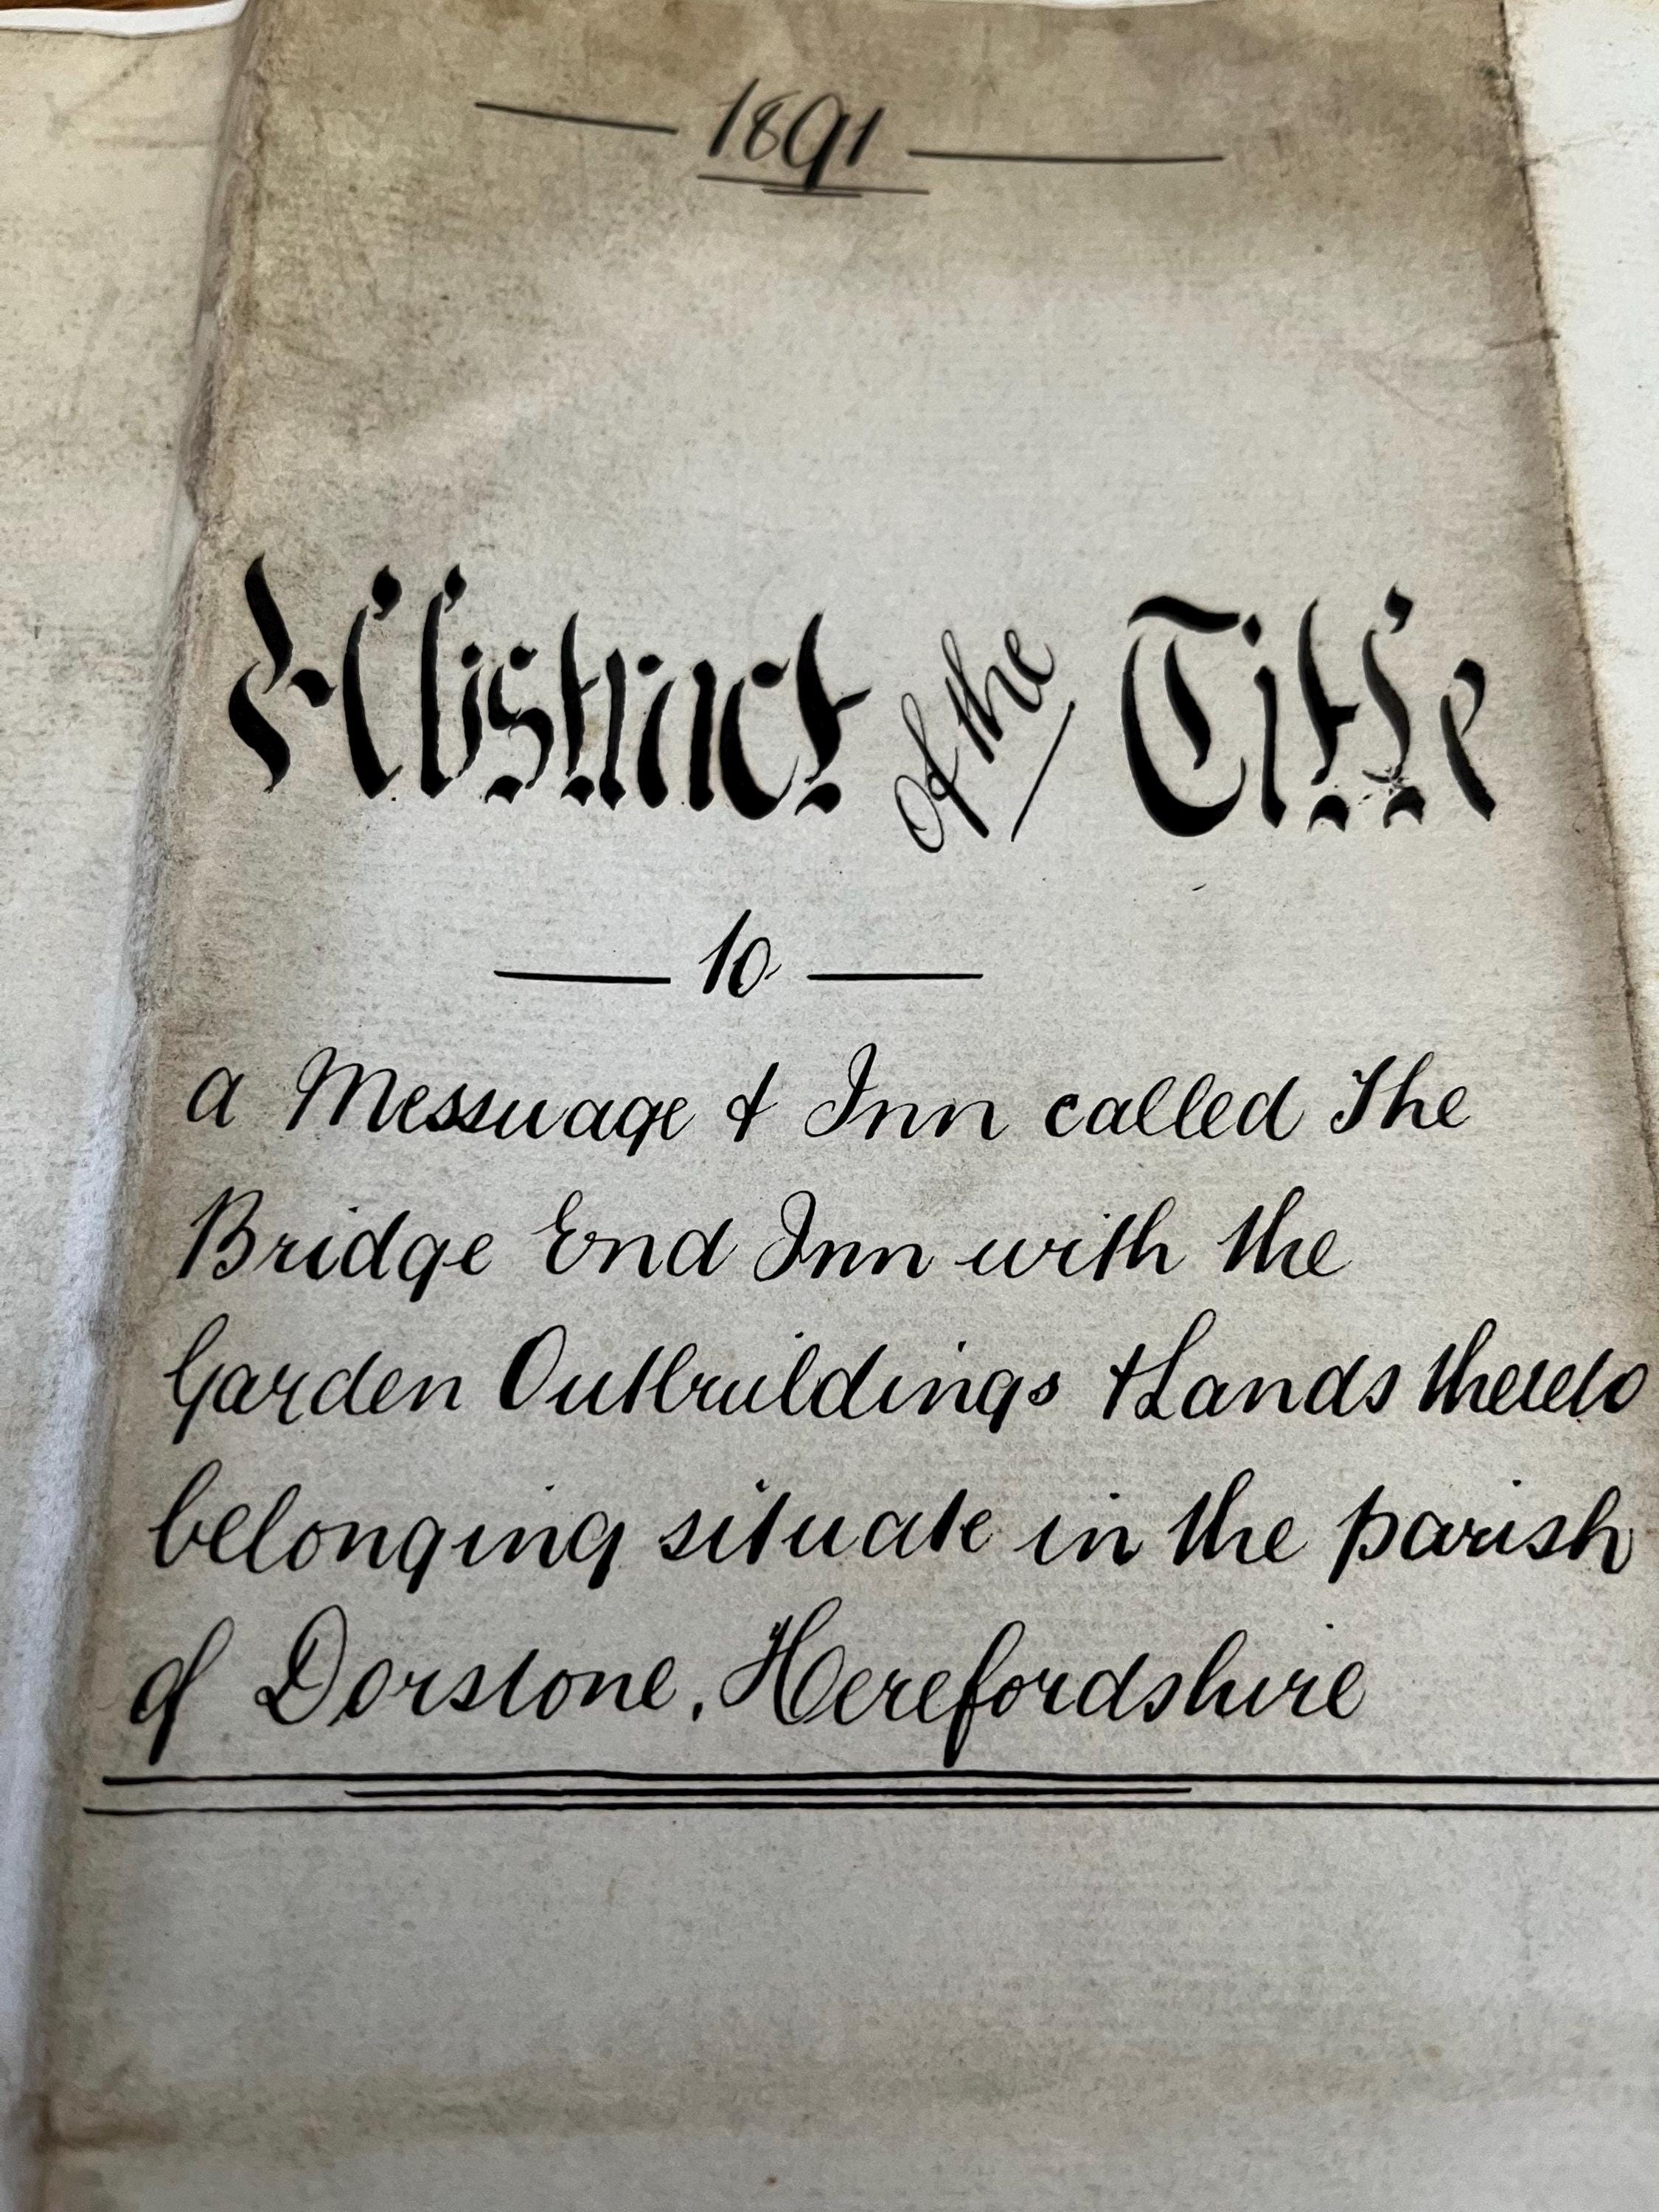 1891
Abstract of the Title
to
a Messuage & Inn called The
Bridge End Inn with the
Garden Outbuildings & Lands thereto
belonging situate in the parish
of Dorstone, Herefordshire